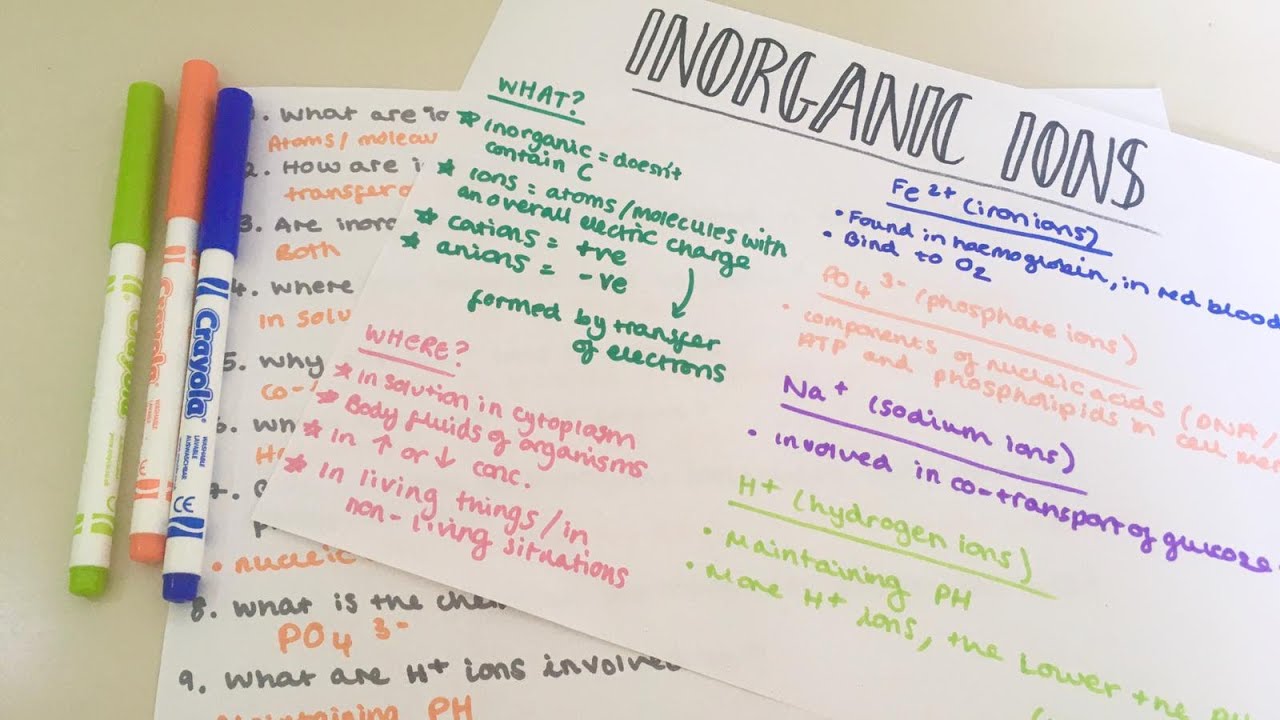 INORGANIC IONS
WHAT?
* inorganic = doesn't
contain C
* ions = atoms/molecules with
an overall electric charge
* cations = +ve
* anions = -ve
formed by transfer
of electrons
WHERE?
* In solution in cytoplasm
* Body fluids of organisms
* In ↑ or ↓ conc.
* In living things/in
non-living situations
Fe2+ (iron ions)
• Found in haemoglobin, in red blood
• Bind to O2
PO4 3- (phosphate ions)
• components of nucleic acids (DNA/
ATP and phospholipids in cell
Na+ (sodium ions)
• involved in co-transport of glucose
H+ (hydrogen ions)
• Maintaining PH
• More H+ ions, the lower the PH
1. What are
Atoms/
2. How are
transfer
3. Are
Both
4. Where
In
5. Why
6.
7.
• nucleic
8. What is the
PO4 3-
9. What are H+ ions involved
Maintaining PH
Crayola
WASHABLE
CE
Crayola
Crayola
CE